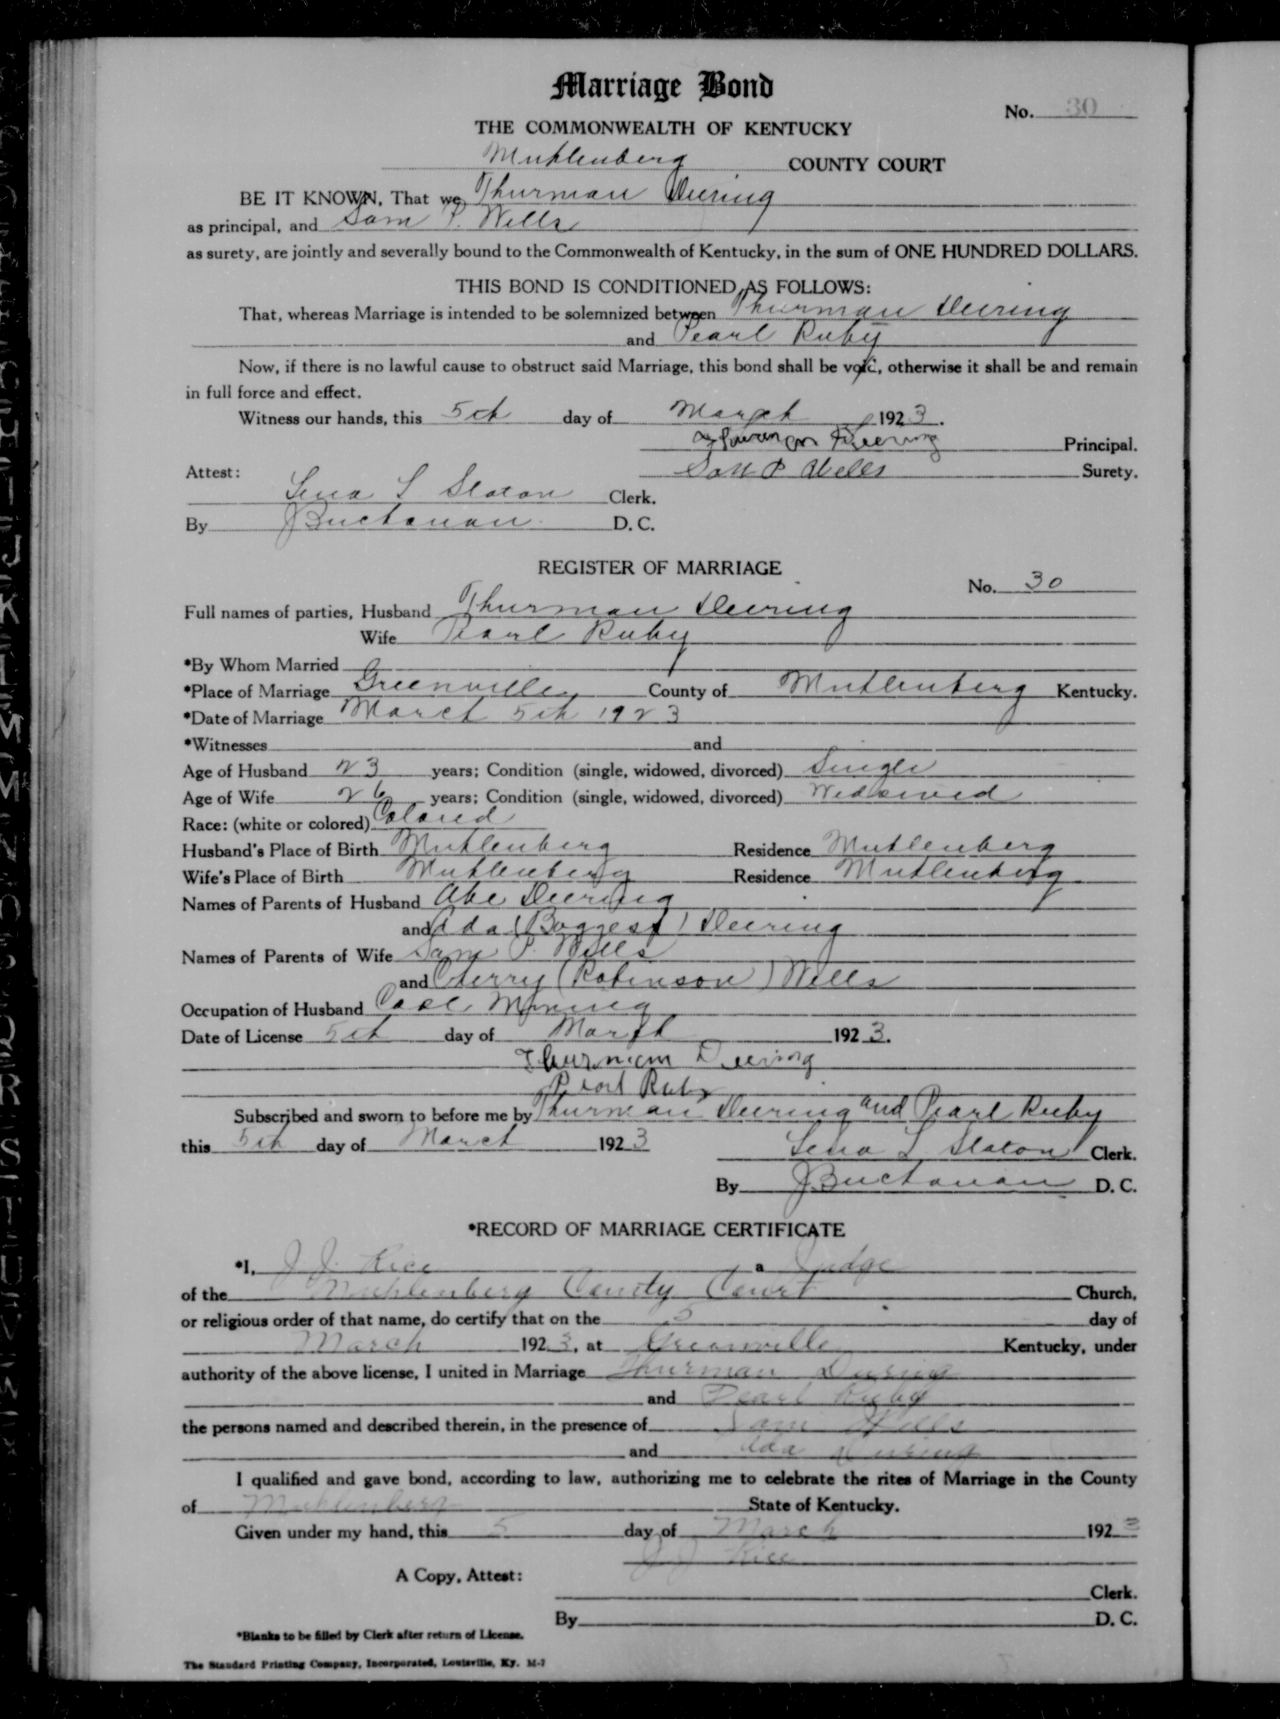 Marriage Bond
No. 30
THE COMMONWEALTH OF KENTUCKY
Muhlenberg COUNTY COURT
BE IT KNOWN, That we, Thurman Deering
as principal, and Sam P. Wells
as surety, are jointly and severally bound to the Commonwealth of Kentucky, in the sum of ONE HUNDRED DOLLARS.
THIS BOND IS CONDITIONED AS FOLLOWS:
That, whereas Marriage is intended to be solemnized between Thurman Deering
and Pearl Ruby
Now, if there is no lawful cause to obstruct said Marriage, this bond shall be void, otherwise it shall be and remain
in full force and effect.
Witness our hands, this 5th day of March 1923.
Thurman Deering Principal.
Attest: Sam P Wells Surety.
Lena L Slaton Clerk.
By J Buchanan D. C.
REGISTER OF MARRIAGE
No. 30
Full names of parties, Husband Thurman Deering
Wife Pearl Ruby
*By Whom Married
*Place of Marriage Greenville, County of Muhlenberg Kentucky.
*Date of Marriage March 5th 1923
*Witnesses and
Age of Husband 23 years; Condition (single, widowed, divorced) Single
Age of Wife 26 years; Condition (single, widowed, divorced) Widowed
Race: (white or colored) Colored
Husband's Place of Birth Muhlenberg Residence Muhlenberg
Wife's Place of Birth Muhlenberg Residence Muhlenberg
Names of Parents of Husband Abe Deering
and Ada (Boggess) Deering
Names of Parents of Wife Sam P. Wells
and Cherry (Robinson) Wells
Occupation of Husband Coal Mining
Date of License 5th day of March 1923.
Thurman Deering
Pearl Ruby
Subscribed and sworn to before me by Thurman Deering and Pearl Ruby
this 5th day of March 1923
Lena L Slaton Clerk.
By J Buchanan D. C.
*RECORD OF MARRIAGE CERTIFICATE
*I, J. J. Rice a Judge
of the Muhlenberg County Court Church,
or religious order of that name, do certify that on the 5 day of
March 1923, at Greenville Kentucky, under
authority of the above license, I united in Marriage Thurman Deering
and Pearl Ruby
the persons named and described therein, in the presence of Sam Wells
and Ada Deering
I qualified and gave bond, according to law, authorizing me to celebrate the rites of Marriage in the County
of Muhlenberg State of Kentucky.
Given under my hand, this 5 day of March 1923
J J Rice
A Copy, Attest:
Clerk.
By D. C.
*Blanks to be filled by Clerk after return of License.
The Standard Printing Company, Incorporated, Louisville, Ky. M-7